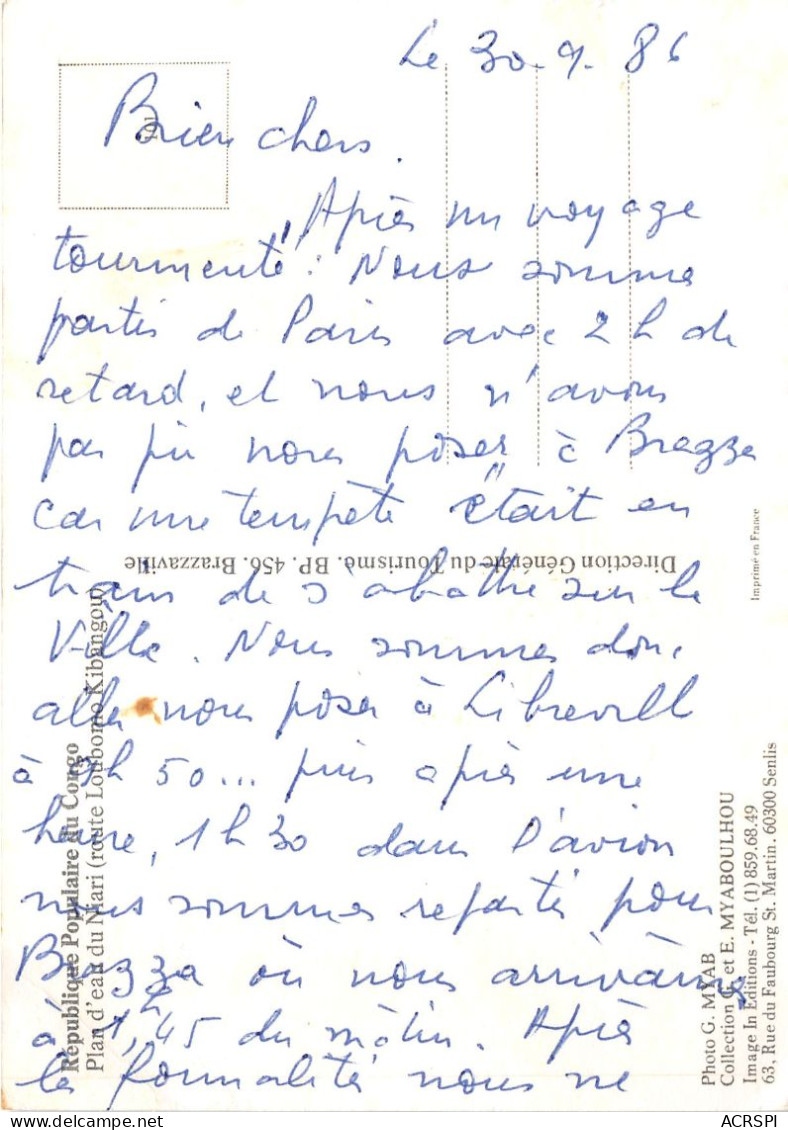 Le 30-9-86
Bien chers.
Après un voyage
tourmenté ! Nous sommes
partis de Paris avec 2 h de
retard, et nous n'avons
pas pû nous poser à Brazza
car une tempête était en
train de s'abattre sur la
Ville. Nous sommes donc
aller nous poser à Libreville
à h 50... puis après une
heure, 1 h 30 dans l'avion
nous sommes repartis pour
Brazza où nous arrivâmes
à 45 du mâtin. Après
les formalités nous ne
Direction Générale du Tourisme. BP. 456. Brazzaville
République Populaire du Congo
Plan d'eau du Niari (route Loubomo Kibangou)
Imprimé en France
Photo G. MYAB
Collection G. et E. MYABOULHOU
Image In Editions - Tél. (1) 859.68.49
63, Rue du Faubourg St. Martin. 60300 Senlis
ACRSPI